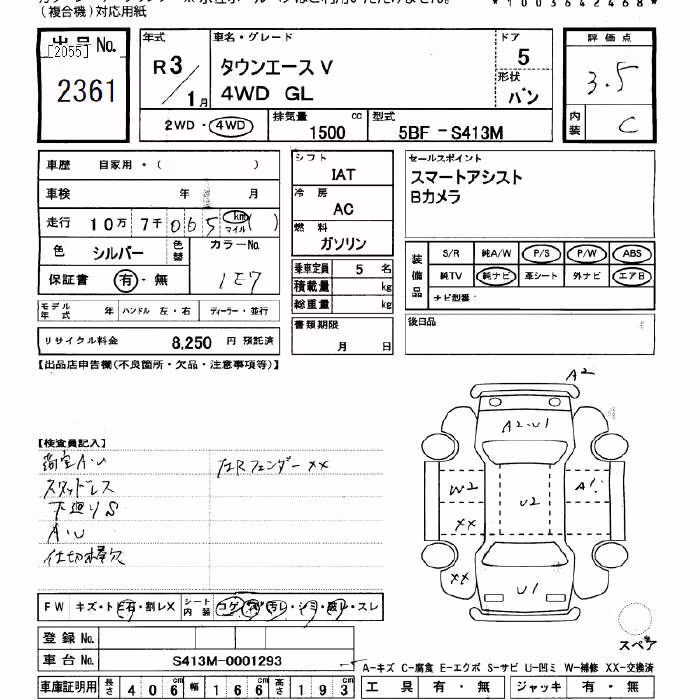 (複合機)対応用紙
*10036424 68*
出品No. [2055] 2361
年式 R3/1月
車名・グレード タウンエース V 4WD GL
ドア 5
形状 バン
評価点 3.5
内装 C
2WD・4WD
排気量 1500 cc
型式 5BF-S413M
車歴 自家用・( )
車検 年 月
走行 10万 7千 065 km マイル ( )
色 シルバー 色替 カラーNo. 1E7
保証書 有・無
モデル年式 年 ハンドル 左・右 ディーラー・並行
リサイクル料金 8,250 円 預託済
シフト IAT
冷房 AC
燃料 ガソリン
乗車定員 5 名
積載量 kg
総重量 kg
書類期限 月 日
セールスポイント
スマートアシスト
Bカメラ
装備品 S/R 純A/W P/S P/W ABS
純TV 純ナビ 革シート 外ナビ エアB
ナビ型番:
後日品
【出品店申告欄(不良箇所・欠品・注意事項等)】
【検査員記入】
荷室A・U 左Rフェンダー××
スタッドレス
下廻りS
A・U
仕切棒欠
A2
A2・U1
W2
U2
A1
××
××
U1
スペア
FW キズ・トビ石・割レX シート内装 コゲ・穴・汚レ・シミ・破レ・スレ
登録No.
車台No. S413M-0001293
A-キズ C-腐食 E-エクボ S-サビ U-凹ミ W-補修 XX-交換済
車庫証明用 長さ 406 cm 幅 166 cm 高さ 193 cm
工具 有・無 ジャッキ 有・無